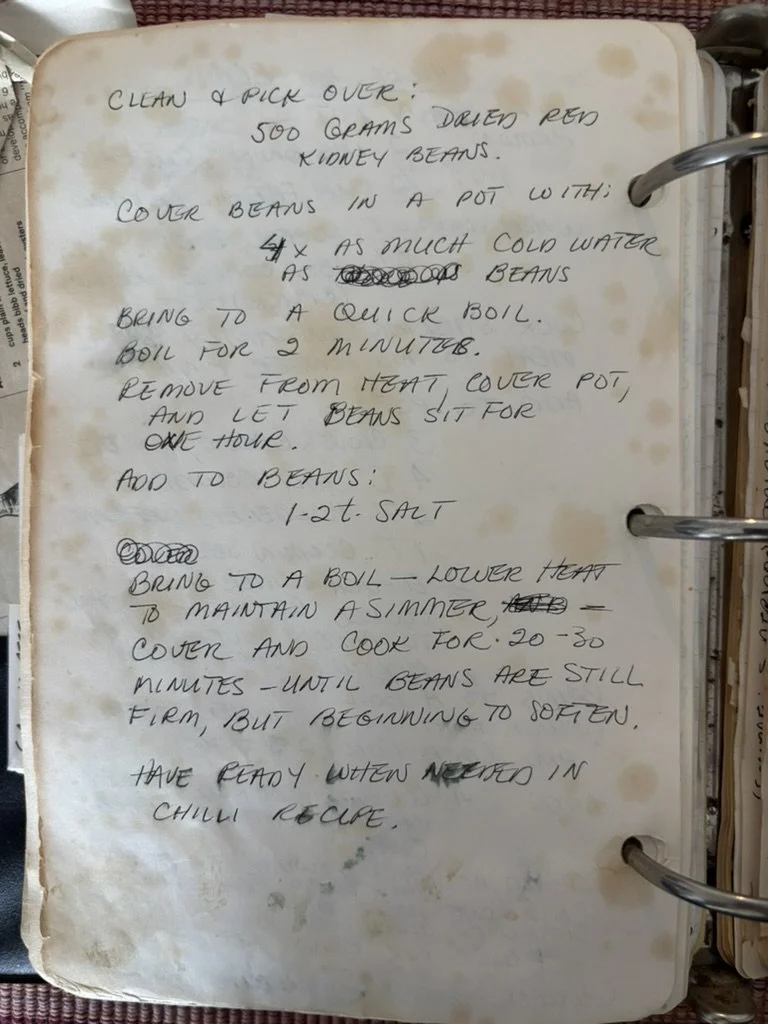 CLEAN & PICK OVER:
500 GRAMS DRIED RED
KIDNEY BEANS.
COVER BEANS IN A POT WITH:
4 X AS MUCH COLD WATER
AS BEANS
BRING TO A QUICK BOIL.
BOIL FOR 2 MINUTES.
REMOVE FROM HEAT, COVER POT,
AND LET BEANS SIT FOR
ONE HOUR.
ADD TO BEANS:
1-2 t. SALT
BRING TO A BOIL — LOWER HEAT
TO MAINTAIN A SIMMER, —
COVER AND COOK FOR 20-30
MINUTES - UNTIL BEANS ARE STILL
FIRM, BUT BEGINNING TO SOFTEN.
HAVE READY WHEN NEEDED IN
CHILLI RECIPE.